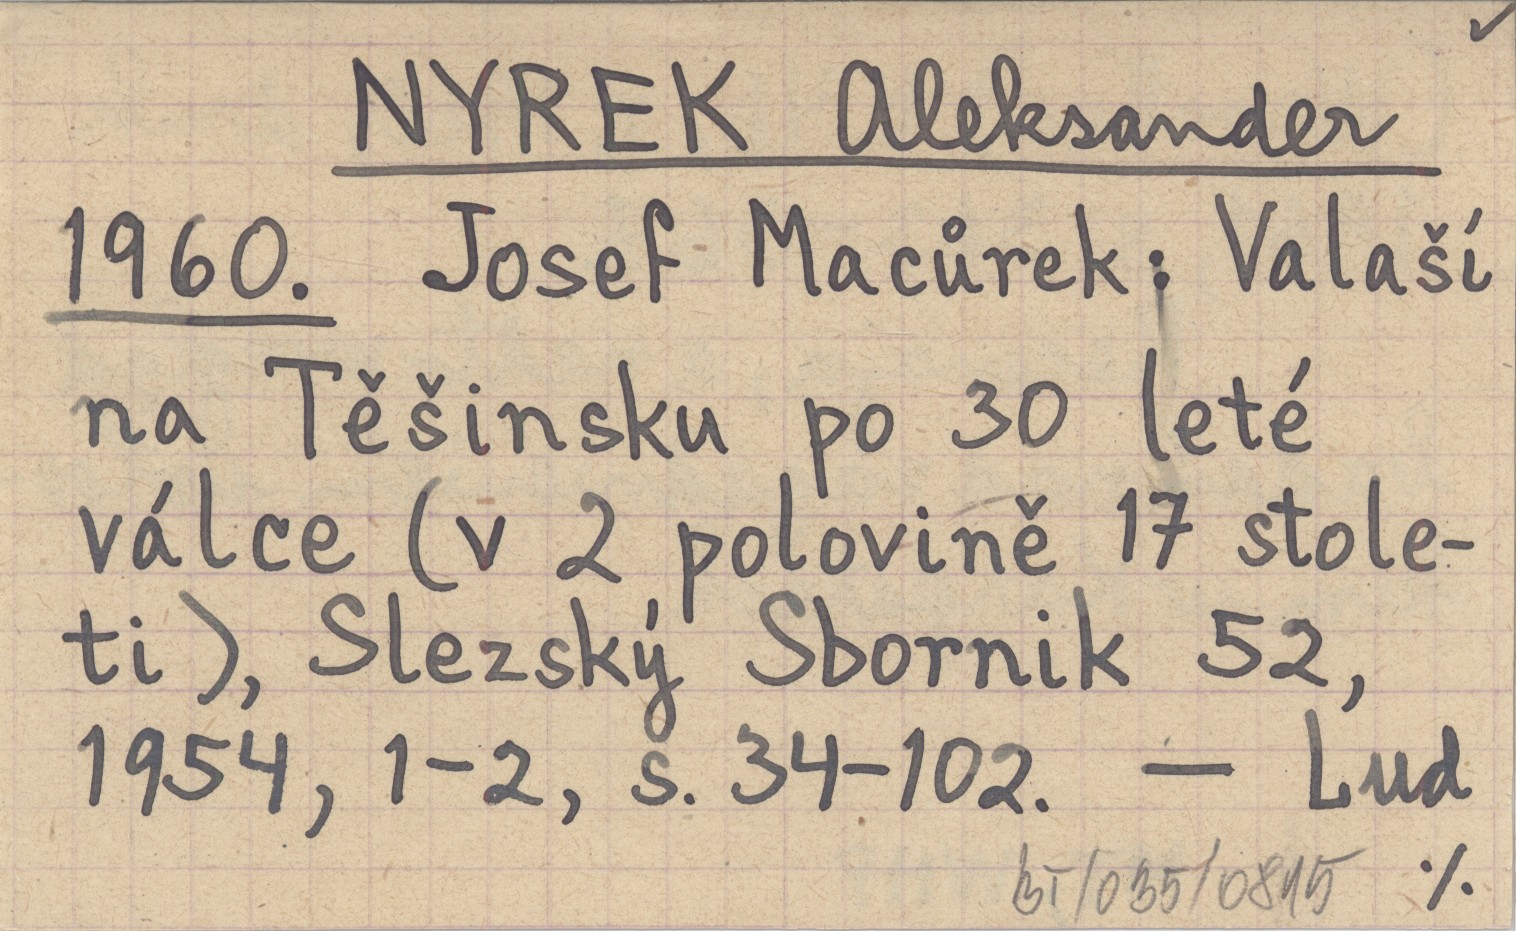 ✓
NYREK Aleksander
1960. Josef Macůrek: Valaší
na Těšinsku po 30 leté
válce (v 2 polovině 17 stole-
ti), Slezský Sbornik 52,
1954, 1-2, s. 34-102. — Lud
BI/035/0815 ./.